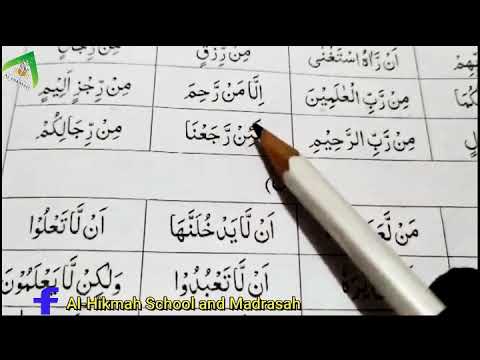 مِنْ رِّزْقٍ اَنْ رَّاٰهُ اسْتَغْنٰى
مِنْ رَّبِّ الْعٰلَمِيْنَ اِلَّا مَنْ رَّحِمَ مِنْ رِّجْزٍ اَلِيْمٍ
مِنْ رَّبِّ الرَّحِيْمِ لَئِنْ رَّجَعْنَا مِنْ رِّجَالِكُمْ
اَنْ لَّا يَدْخُلَنَّهَا اَنْ لَّا تَعْلُوْا
اَنْ لَّا تَعْبُدُوْا وَلٰكِنْ لَّا يَعْلَمُوْنَ
Al-Hikmah School and Madrasah